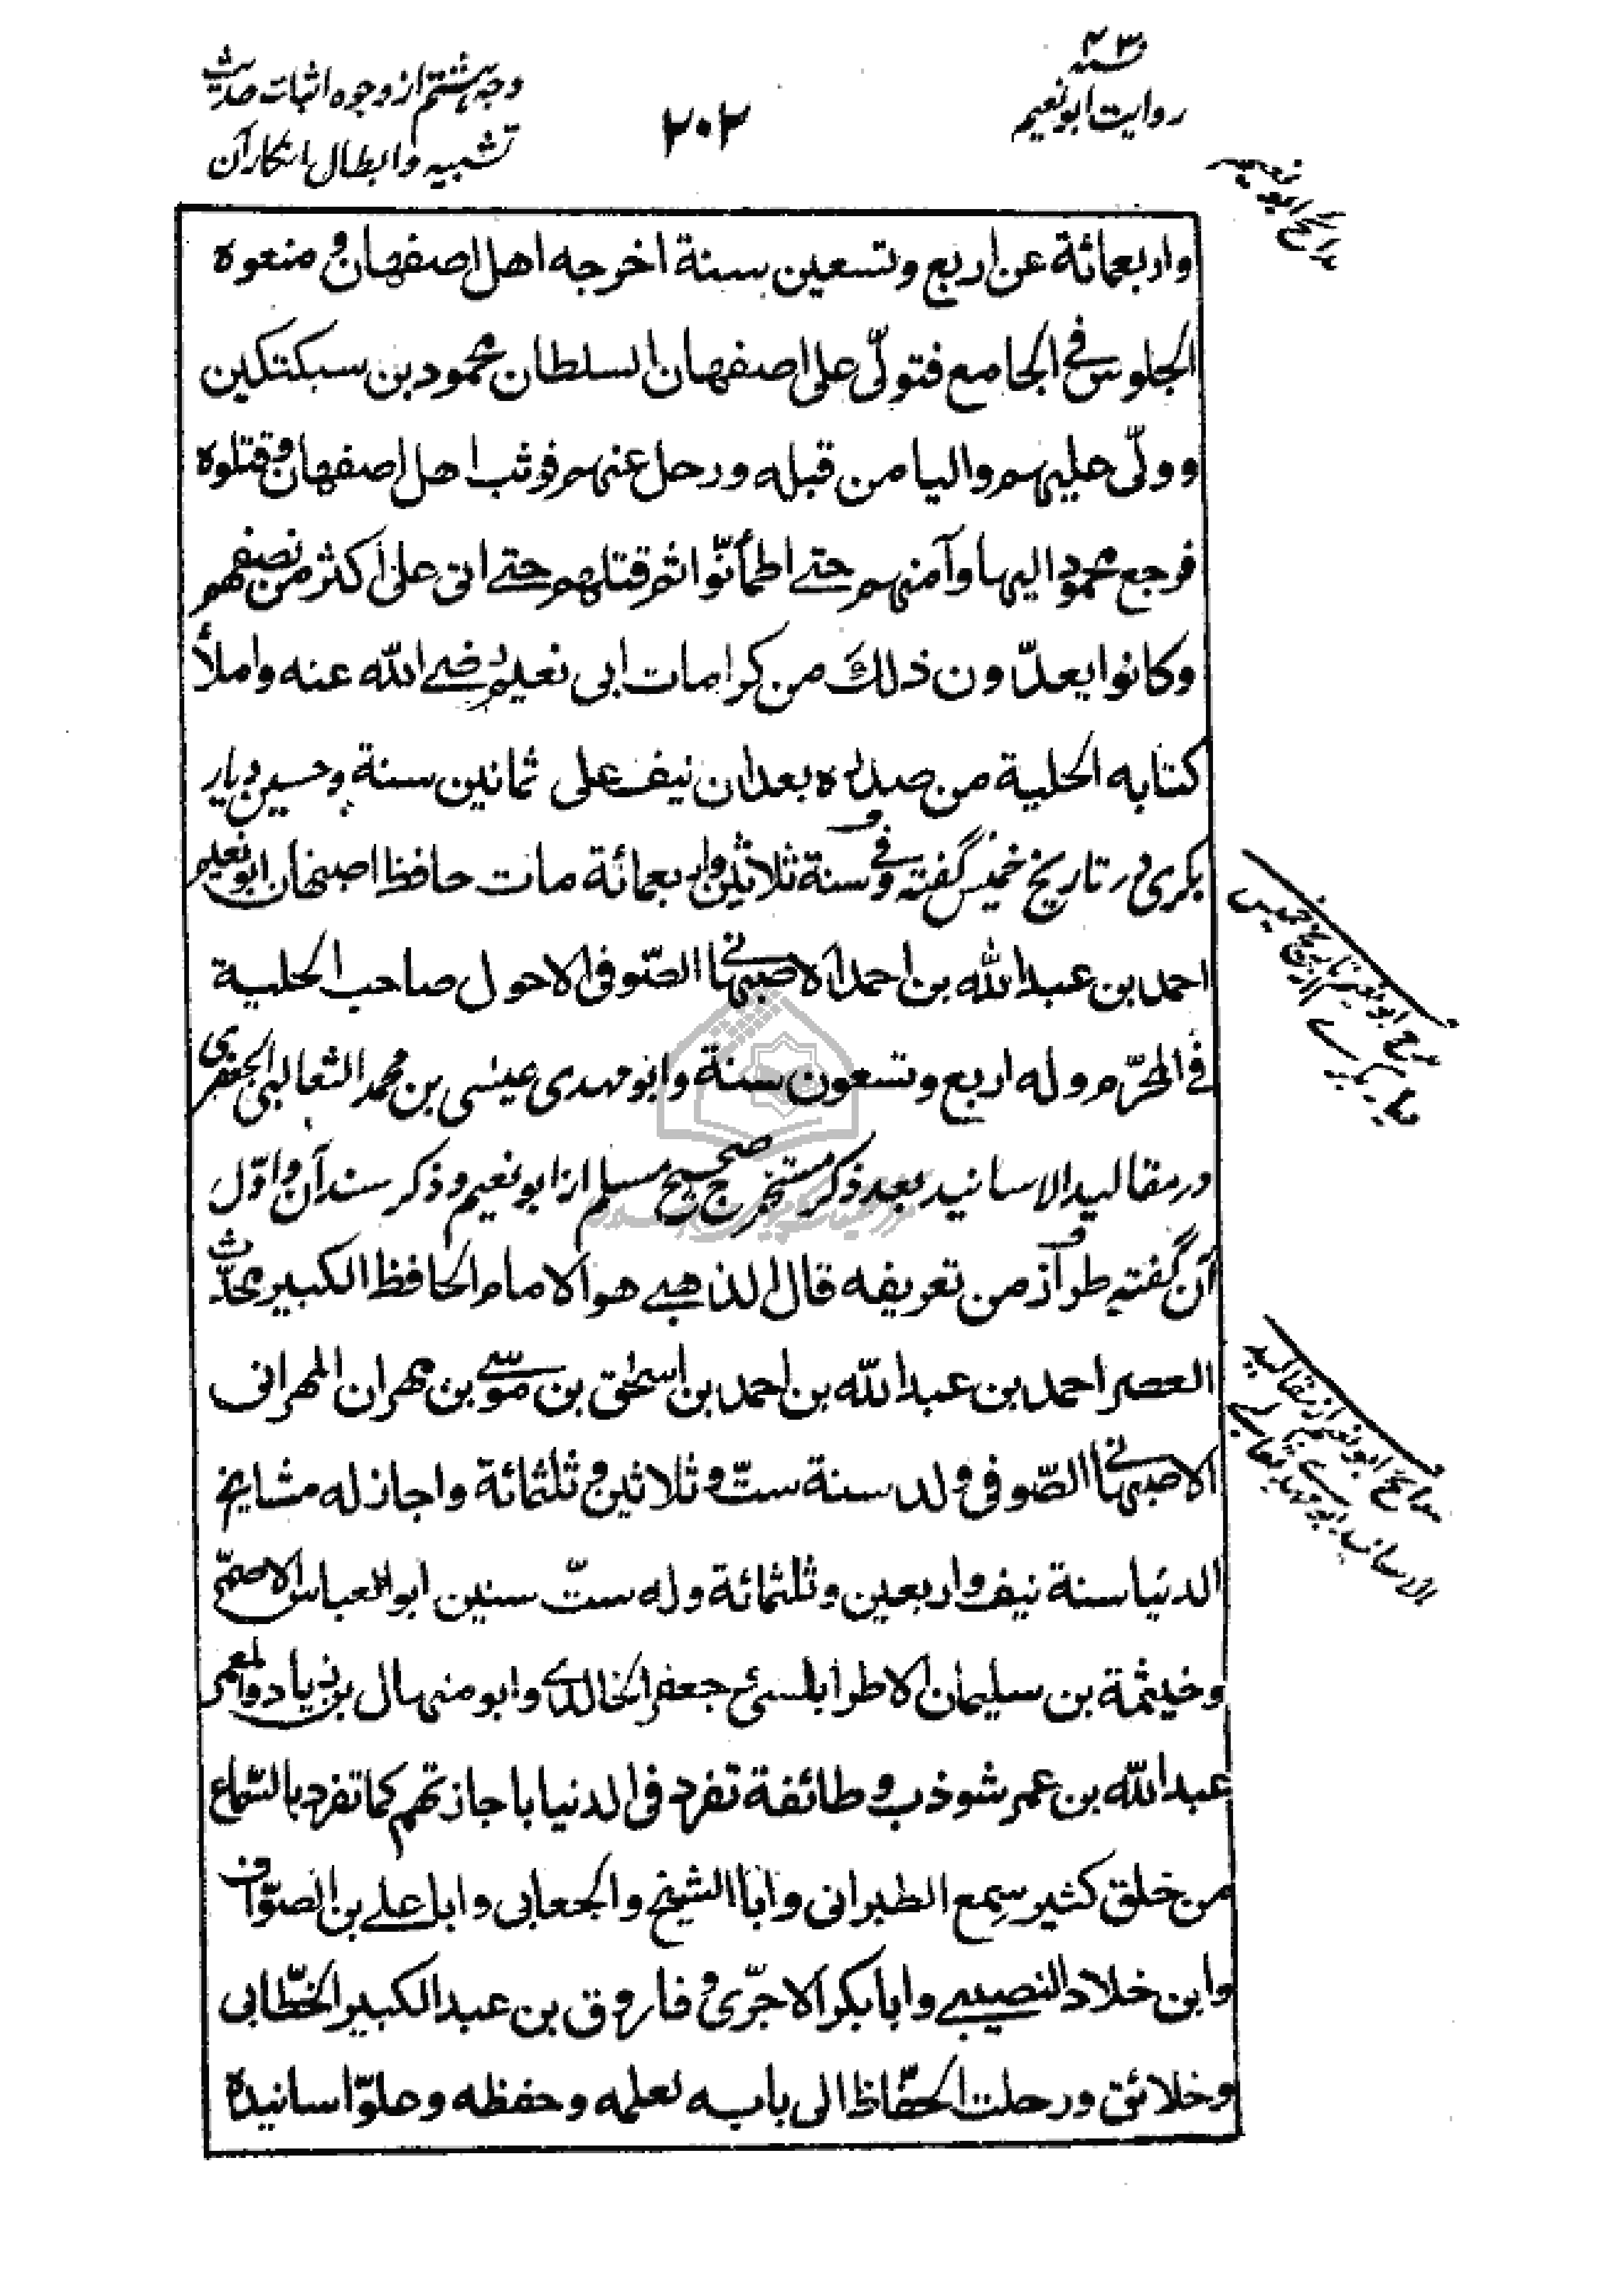 ۴۳
روایت ابونعیم
۲۰۲
وجه هشتم از وجوه اثبات حدیث
تشبیه و ابطال انکار آن
مدائح ابو نعیم
واربعمائة عن اربع وتسعین سنة اخرجه اهل اصفهان و منعوه
الجلوس فی الجامع فتولّی علی اصفهان السلطان محمود بن سبکتکین
وولّی علیهم والیا من قبله ورحل عنهم فوثب اهل اصفهان و قتلوه
فرجع محمود الیها وآمنهم حتی اطمأنّوا ثم قتلهم حتی اتی علی أکثر من نصفهم
وکانوا یعدّون ذلك من کرامات ابی نعیم رضی الله عنه واملأ
کتابه الحلیة من صدره بعد ان نیف علی ثمانین سنة و حسین دیار
بکری در تاریخ خمیس گفته و فی سنة ثلاثین واربعمائة مات حافظ اصبهان ابو نعیم
احمد بن عبد الله بن احمد الاصبهانی الصّوفی الاحول صاحب الحلیة
فی المحرّم وله اربع وتسعون سنة وابو مهدی عیسی بن محمد الثعالبی الجعفری
در مقالید الاسانید بعد ذکر مستخرج صحیح مسلم از ابو نعیم و ذکر سند آن و اوّل
آن گفته طراز من تعریفه قال الذهبی هو الامام الحافظ الکبیر محدّث
العصر احمد بن عبد الله بن احمد بن اسحٰق بن موسی بن مهران المهرانی
الاصبهانی الصّوفی ولد سنة ستّ و ثلاثین و ثلثمائة واجاز له مشایخ
الدنیا سنة نیف واربعین وثلثمائة وله ستّ سنین ابو العباس الاصمّ
وخیثمة بن سلیمان الاطرابلسی و جعفر الخالدی وابو منهال بن زیاد والمعمر
عبد الله بن عمر شوذب و طائفة تفرد فی الدنیا باجازتهم کما تفرد بالسّماع
من خلق کثیر سمع الطبرانی وابا الشیخ والجعابی وابا علی بن الصوّاف
وابن خلاد النصیبی وابا بکر الاجرّی و فاروق بن عبد الکبیر الخطّابی
وخلائق ورحلت الحفّاظ الی بابه لعلمه وحفظه وعلوّ اسانیده
مدح ابو نعیم از تاریخ خمیس
دیار بکری
مدائح ابو نعیم از مقالید
الاسانید ابو مهدی ثعالبی